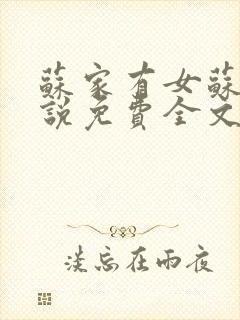 蘇家有女蘇
說免費全文
淡忘在雨夜